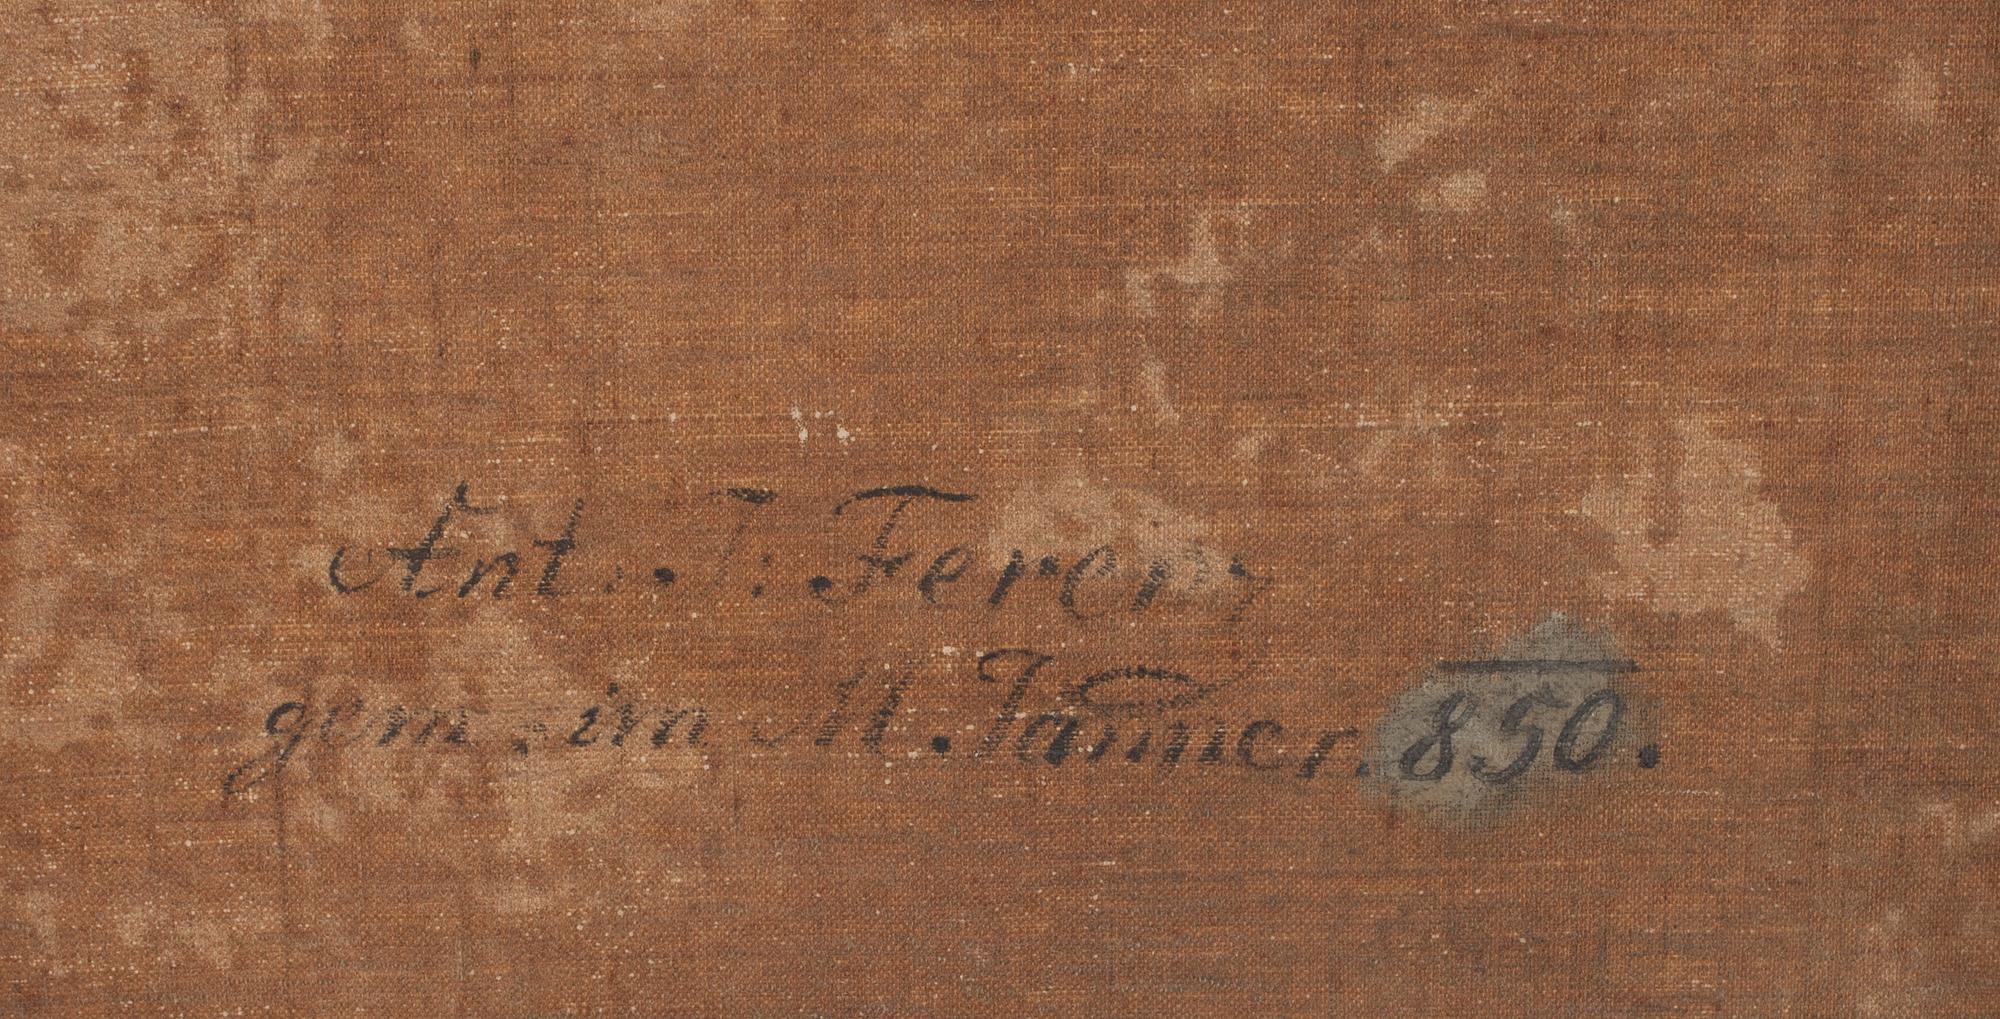 Ant. J. Ferenz
gem. im M. Janner. 850.